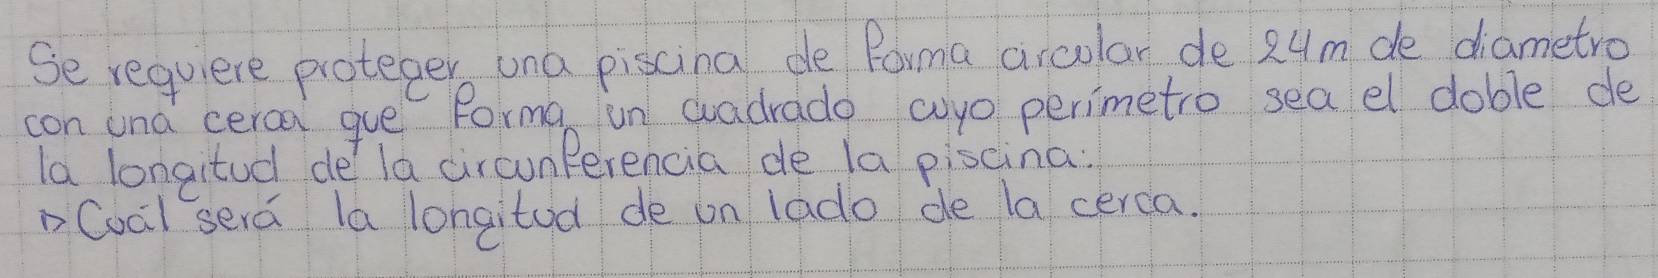 Se requiere proteger una piscina de forma circular de 24m de diametro
con una cerca que forma un cuadrado cuyo perímetro sea el doble de
la longitud de la circunferencia de la piscina:
▷ Cuál será la longitud de un lado de la cerca.